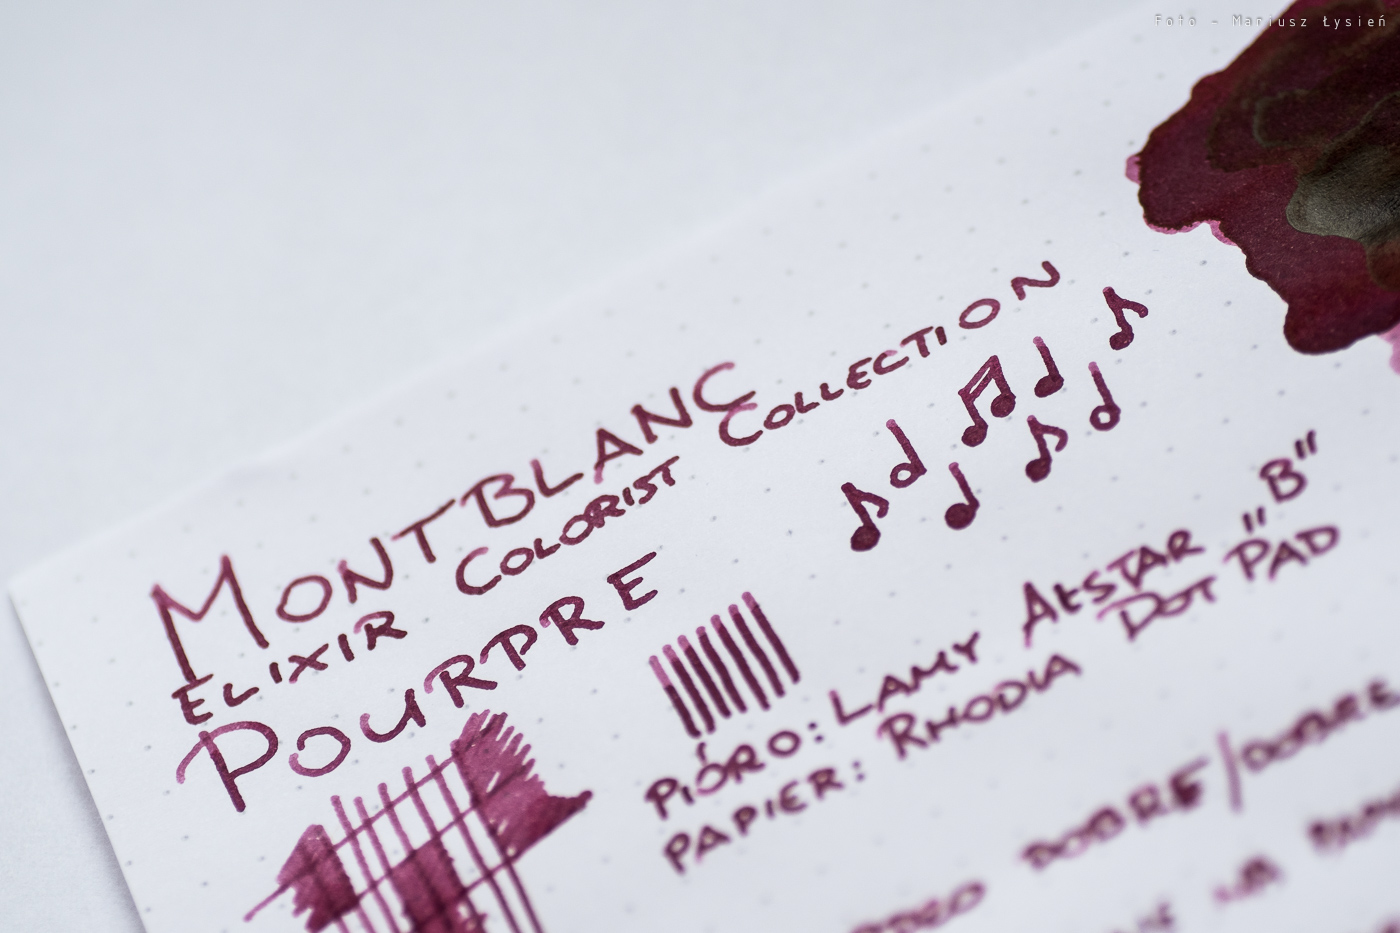 Foto - Mariusz Łysień
MONTBLANC
ELIXIR COLORIST COLLECTION
POURPRE
PIÓRO: LAMY ALSTAR "B"
PAPIER: RHODIA DOT PAD
DOBRE/DOBRE
NA